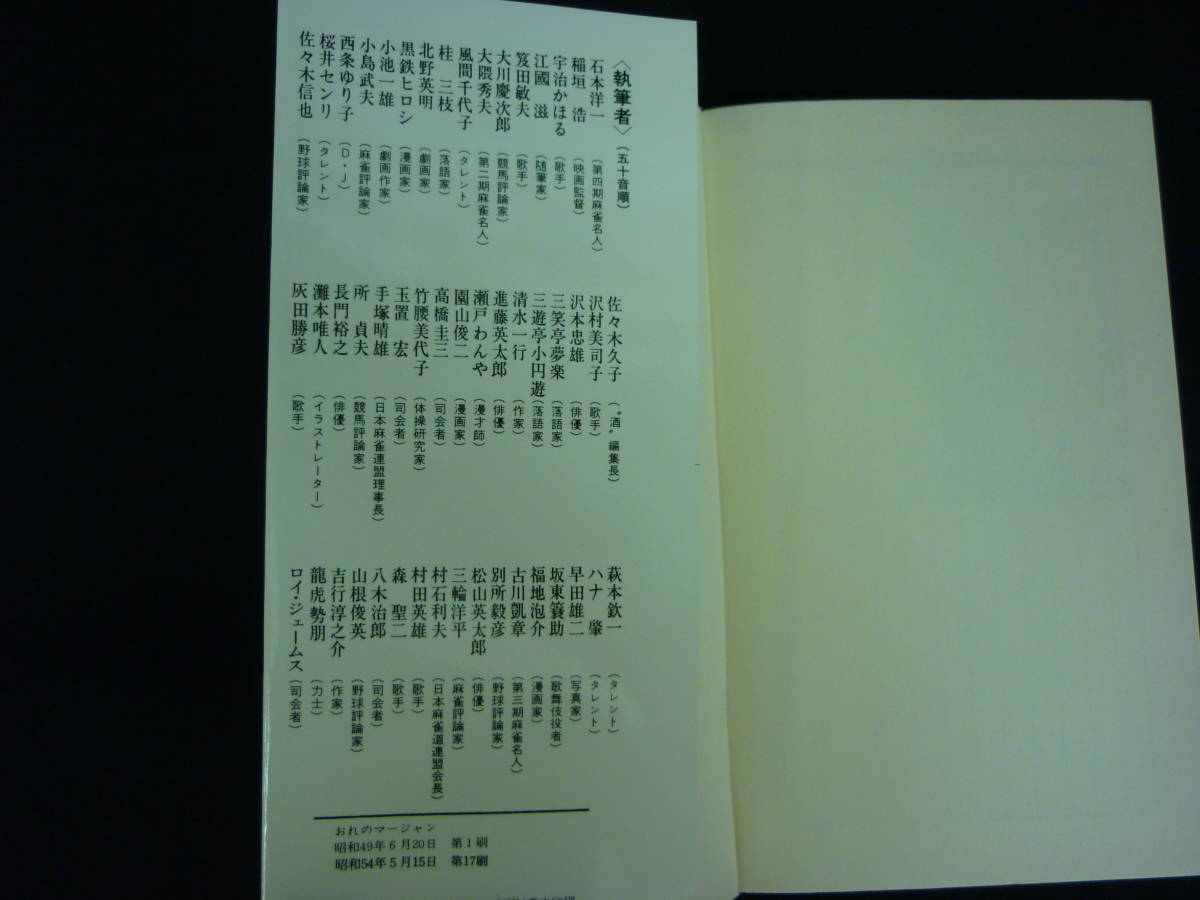 〈執筆者〉（五十音順）
石本洋一（第四期麻雀名人）
稲垣　浩（映画監督）
宇治かほる（歌手）
江國　滋（随筆家）
笈田敏夫（歌手）
大川慶次郎（競馬評論家）
大隈秀夫（第二期麻雀名人）
風間千代子（タレント）
桂　三枝（落語家）
北野英明（劇画家）
黒鉄ヒロシ（漫画家）
小池一雄（劇画作家）
小島武夫（麻雀評論家）
西条ゆり子（D・J）
桜井センリ（タレント）
佐々木信也（野球評論家）
佐々木久子（〝酒〟編集長）
沢村美司子（歌手）
沢本忠雄（俳優）
三笑亭夢楽（落語家）
三遊亭小円遊（落語家）
清水一行（作家）
進藤英太郎（俳優）
瀬戸わんや（漫才師）
園山俊二（漫画家）
高橋圭三（司会者）
竹腰美代子（体操研究家）
玉置　宏（司会者）
手塚晴雄（日本麻雀連盟理事長）
所　貞夫（競馬評論家）
長門裕之（俳優）
灘本唯人（イラストレーター）
灰田勝彦（歌手）
萩本欽一（タレント）
ハナ　肇（タレント）
早田雄二（写真家）
坂東簑助（歌舞伎役者）
福地泡介（漫画家）
古川凱章（第三期麻雀名人）
別所毅彦（野球評論家）
松山英太郎（俳優）
三輪洋平（麻雀評論家）
村石利夫（日本麻雀道連盟会長）
村田英雄（歌手）
森　聖二（歌手）
八木治郎（司会者）
山根俊英（野球評論家）
吉行淳之介（作家）
龍虎勢朋（力士）
ロイ・ジェームス（司会者）
おれのマージャン
昭和49年6月20日　第1刷
昭和54年5月15日　第17刷